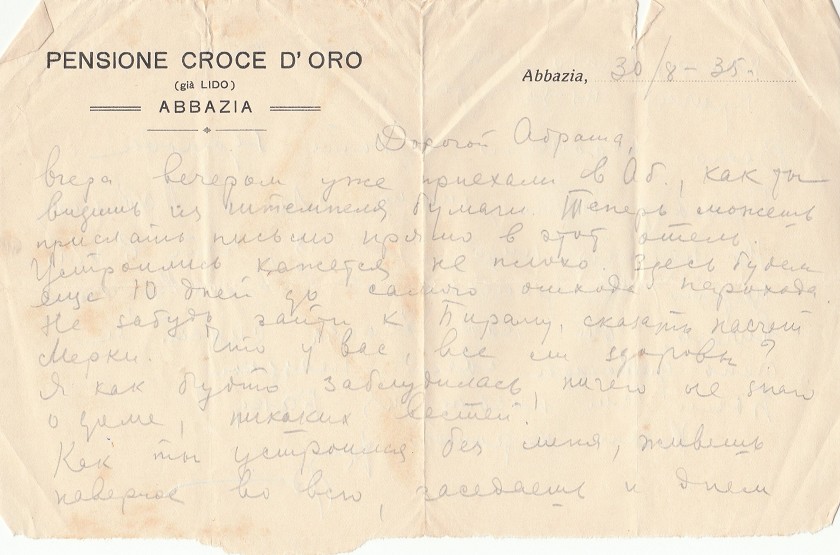 PENSIONE CROCE D'ORO
(già LIDO)
ABBAZIA
Abbazia, 30/8-35.
Дорогой Абраша,
вчера вечером уже приехали в Аб., как ты
видишь из штемпеля бумаги. Теперь можешь
прислать письмо прямо в этот отель.
Устроились кажется не плохо. Здесь будем
еще 10 дней до самого отхода парохода
Не забудь зайти к Бираму, сказать насчот
Мерки. Что у вас, все ли здоровы?
Я как будто заблудилась, ничего не знаю
о доме, никаких вестей.
Как ты устроился без меня, живешь
наверное во всю, заседаешь и днем